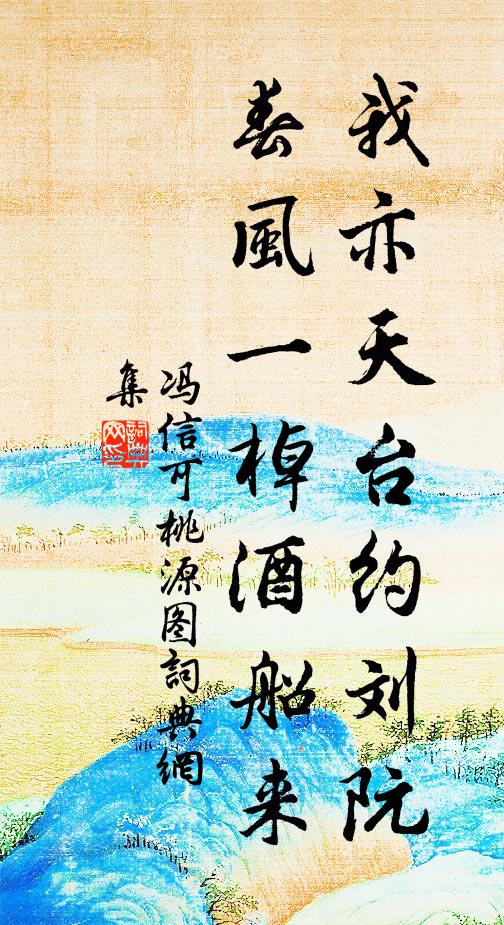 我亦天台约刘阮
春風一棹酒船来
冯信可桃源图詞典網
集